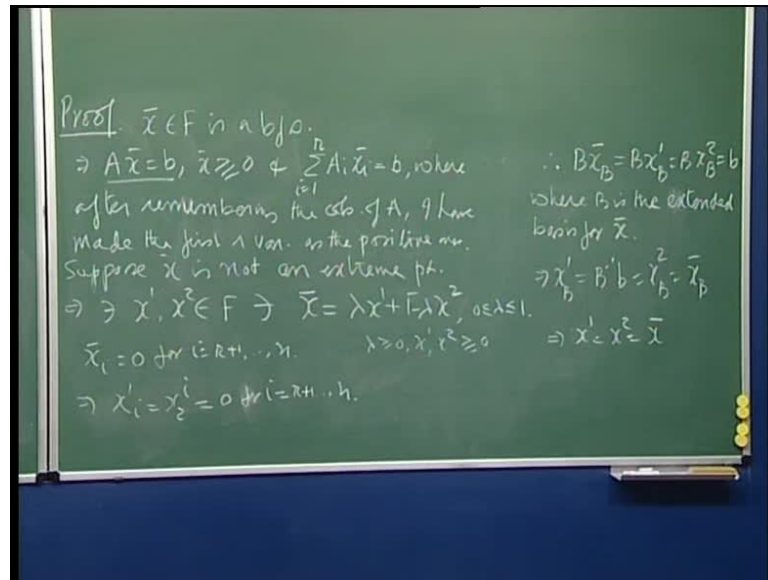 Proof. x̄ ∈ F is a bfs.
⇒ Ax̄ = b, x̄ ≥ 0 & Σ_{i=1}^{r} A_i x̄_i = b, where
after remembering the cols. of A, I have
made the first r var. as the positive ones.
Suppose x̄ is not an extreme pt.
⇒ ∃ x¹, x² ∈ F ∋ x̄ = λx¹ + 1-λx², 0≤λ≤1.
x̄_i = 0 for i = r+1, .., n.
λ ≥ 0, x¹, x² ≥ 0
⇒ x¹_i = x_2^i = 0 for i = r+1 .. n.
∴ Bx̄_B = Bx¹_B = Bx²_B = b
where B is the extended
basis for x̄.
⇒ x¹_B = B⁻¹b = x²_B = x̄_B
⇒ x¹ = x² = x̄